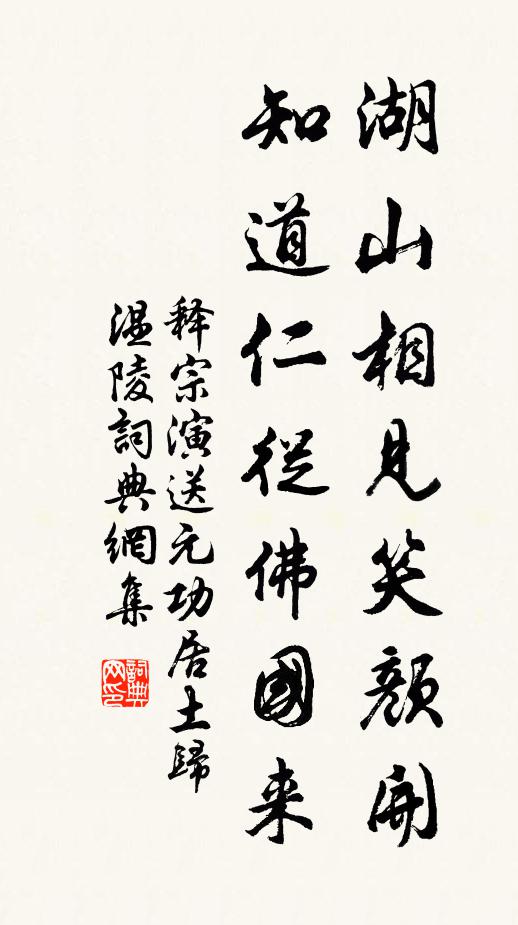 湖山相見笑顏開
知道仁從佛國来
释宗演送元功居土歸
温陵詞典網集
詞典网印